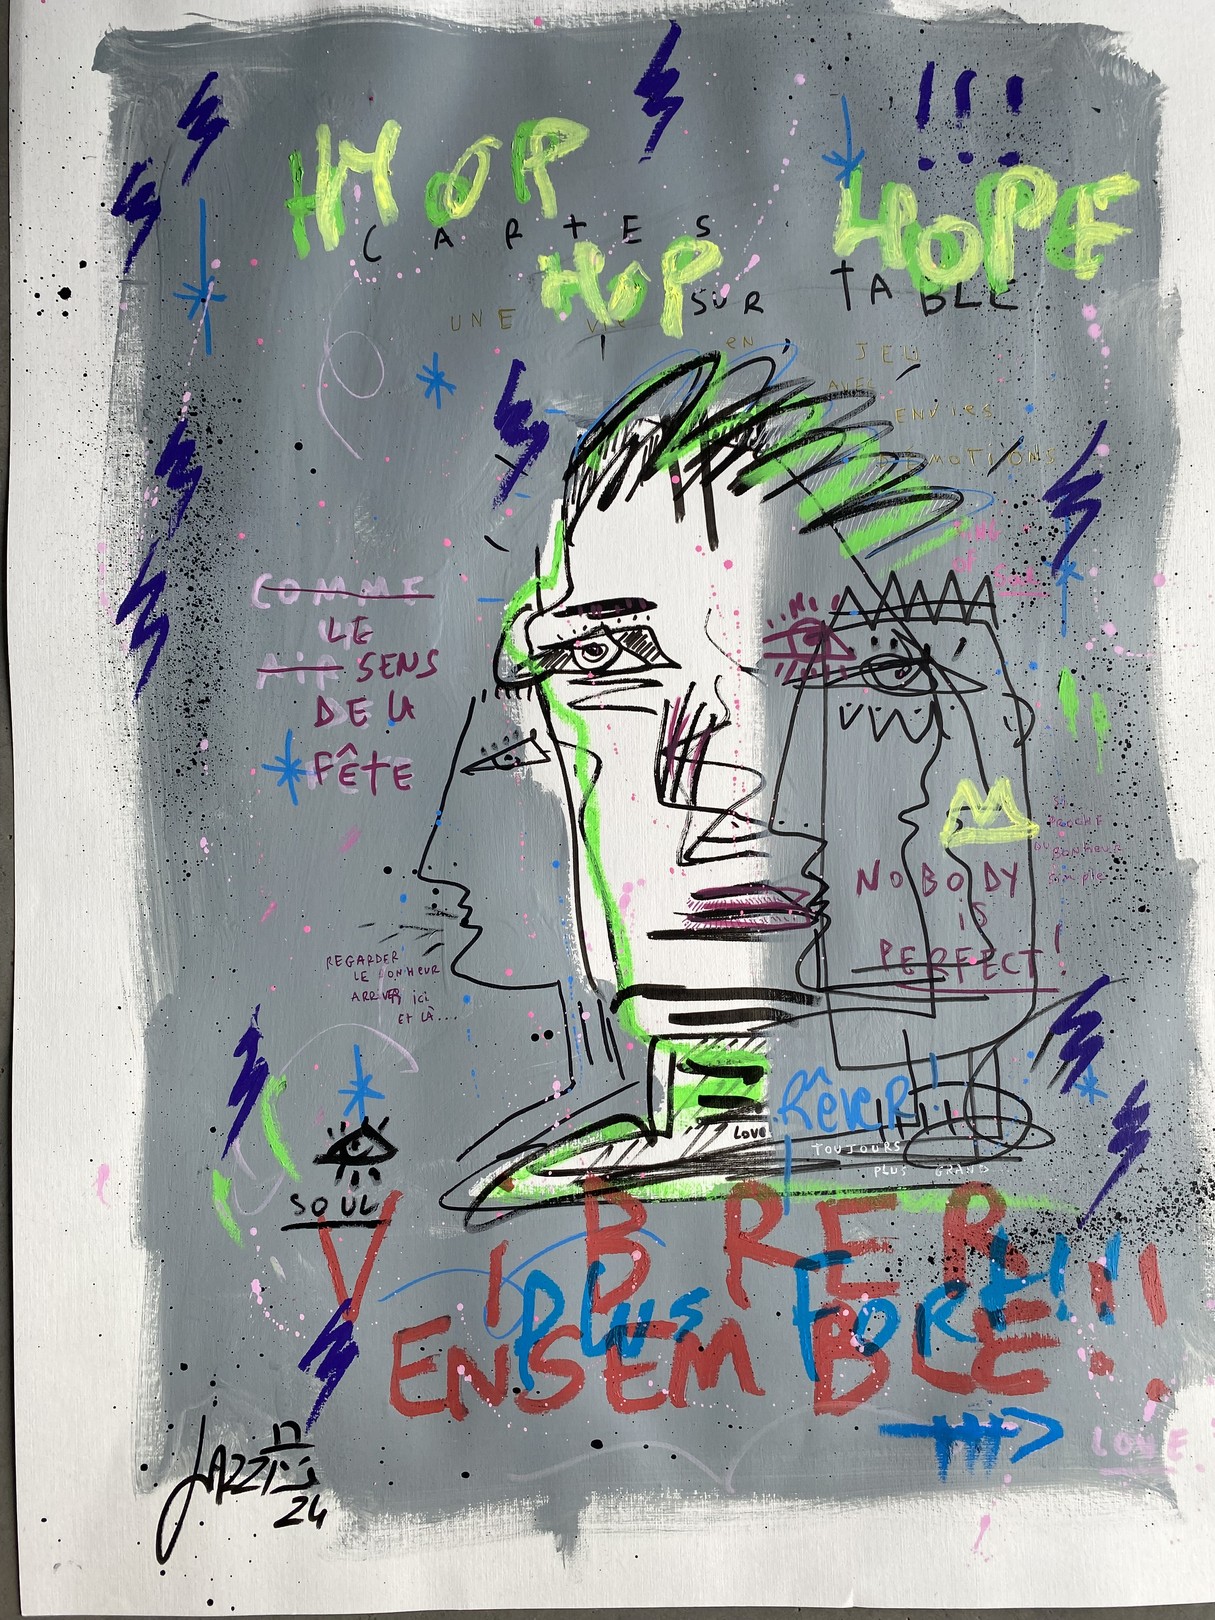 HOP
HOP
HOPE
CARTES
SUR TABLE
UNE VIE
EN JEU
AVEC
ENVIES
EMOTIONS
OF
COMME
LE
AIR SENS
DE LA
FÊTE
PROCHE
DU BONHEUR
simple
NOBODY
IS
PERFECT!
REGARDER
LE BONHEUR
ARRIVER ici
ET LÀ...
SOUL
Love
Rêver!
TOUJOURS
PLUS GRAND
VIBRER
PLUS FORT!!!
ENSEMBLE!
LOVE
JAZZI
24